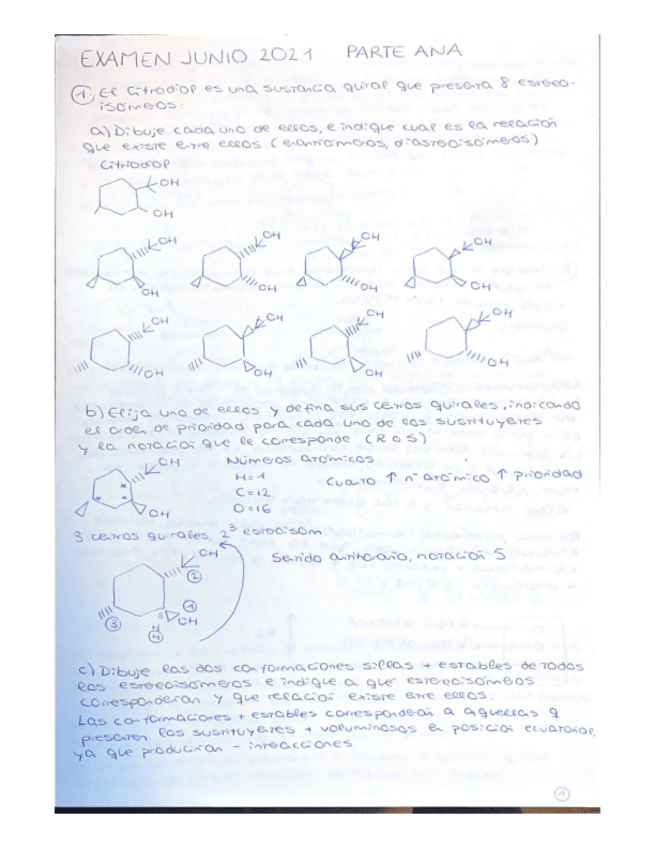 EXAMEN JUNIO 2021 PARTE ANA
1. El Citrodiol es una sustancia quiral que presenta 8 estereo-
isómeros:
a) Dibuje cada uno de ellos, e indique cual es la relación
que existe entre ellos (enantiómeros, diastereoisómeros)
Citriodiol
OH
OH
OH OH OH OH
OH OH OH OH
OH OH OH OH
OH OH OH OH
b) Elija uno de ellos y defina sus centros quirales, indicando
el orden de prioridad para cada uno de los sustituyentes
y la notación que le corresponde (R o S)
OH
OH
Números atómicos
H=1
C=12
O=16
Cuanto ↑ nº atómico ↑ prioridad
3 centros quirales, 2³ estereoisom.
OH
2
1
OH
3
H
4
Sentido antihorario, notación S
c) Dibuje las dos conformaciones sillas + estables de todos
los estereoisómeros e indique a qué estereoisómeros
corresponderían y que relación existe entre ellos.
Las conformaciones + estables corresponderán a aquellas q
presenten los sustituyentes + voluminosos en posición ecuatorial,
ya que producirán - interacciones
1